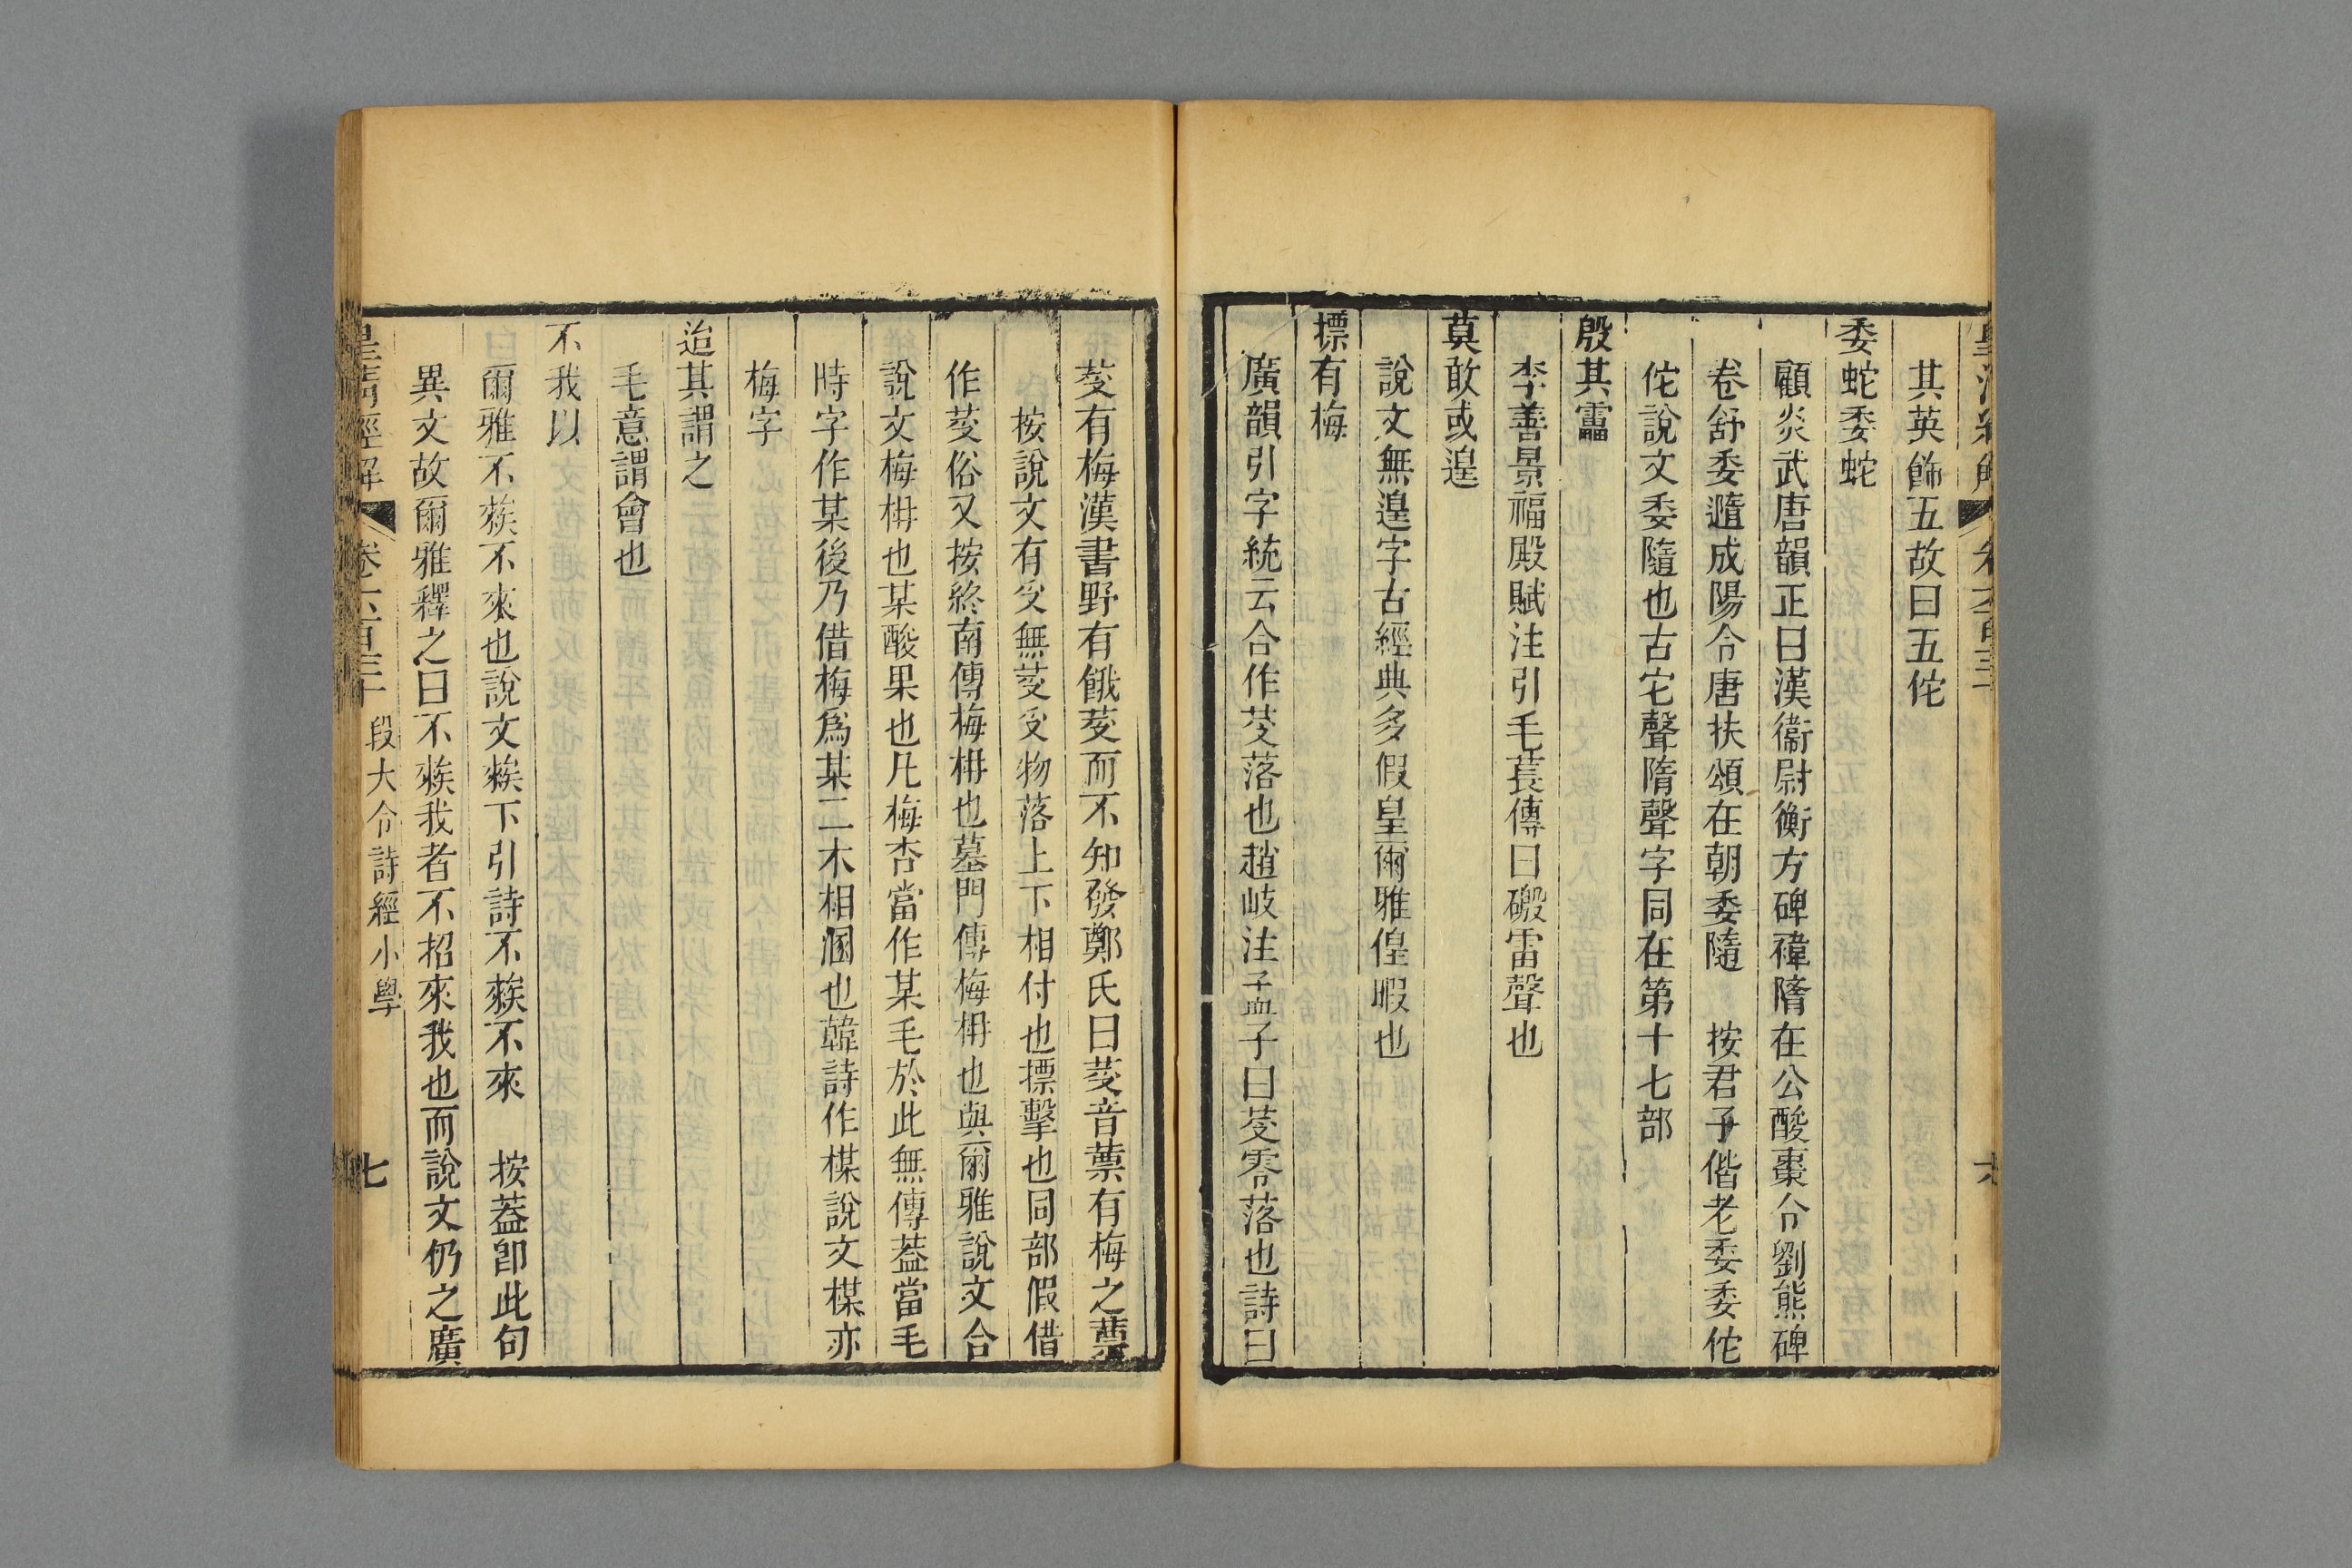 皇清經解
卷六百三十
六
其英飾五故曰五佗
委蛇委蛇
顧炎武唐韻正曰漢衞尉衡方碑禕隋在公酸棗令劉熊碑
卷舒委隨成陽令唐扶頌在朝委隨　按君子偕老委委佗
佗說文委隨也古它聲隋聲字同在第十七部
殷其靁
李善景福殿賦注引毛萇傳曰磤雷聲也
莫敢或遑
說文無遑字古經典多假皇爾雅偟暇也
摽有梅
廣韻引字統云合作芟落也趙岐注孟子曰芟零落也詩曰
芟有梅漢書野有餓芟而不知發鄭氏曰芟音蔈有梅之蔈
按說文有𠬪無芟𠬪物落上下相付也摽擊也同部假借
作芟俗又按終南傳梅枏也墓門傳梅枏也與爾雅說文合
說文梅枏也某酸果也凡梅杏當作某毛於此無傳葢當毛
時字作某後乃借梅爲某二木相溷也韓詩作楳說文楳亦
梅字
迨其謂之
毛意謂會也
不我以
爾雅不䅈不來也說文䅈下引詩不䅈不來　按葢卽此句
異文故爾雅釋之曰不䅈我者不招來我也而說文仍之廣
皇清經解
卷六百三十
段大令詩經小學
七